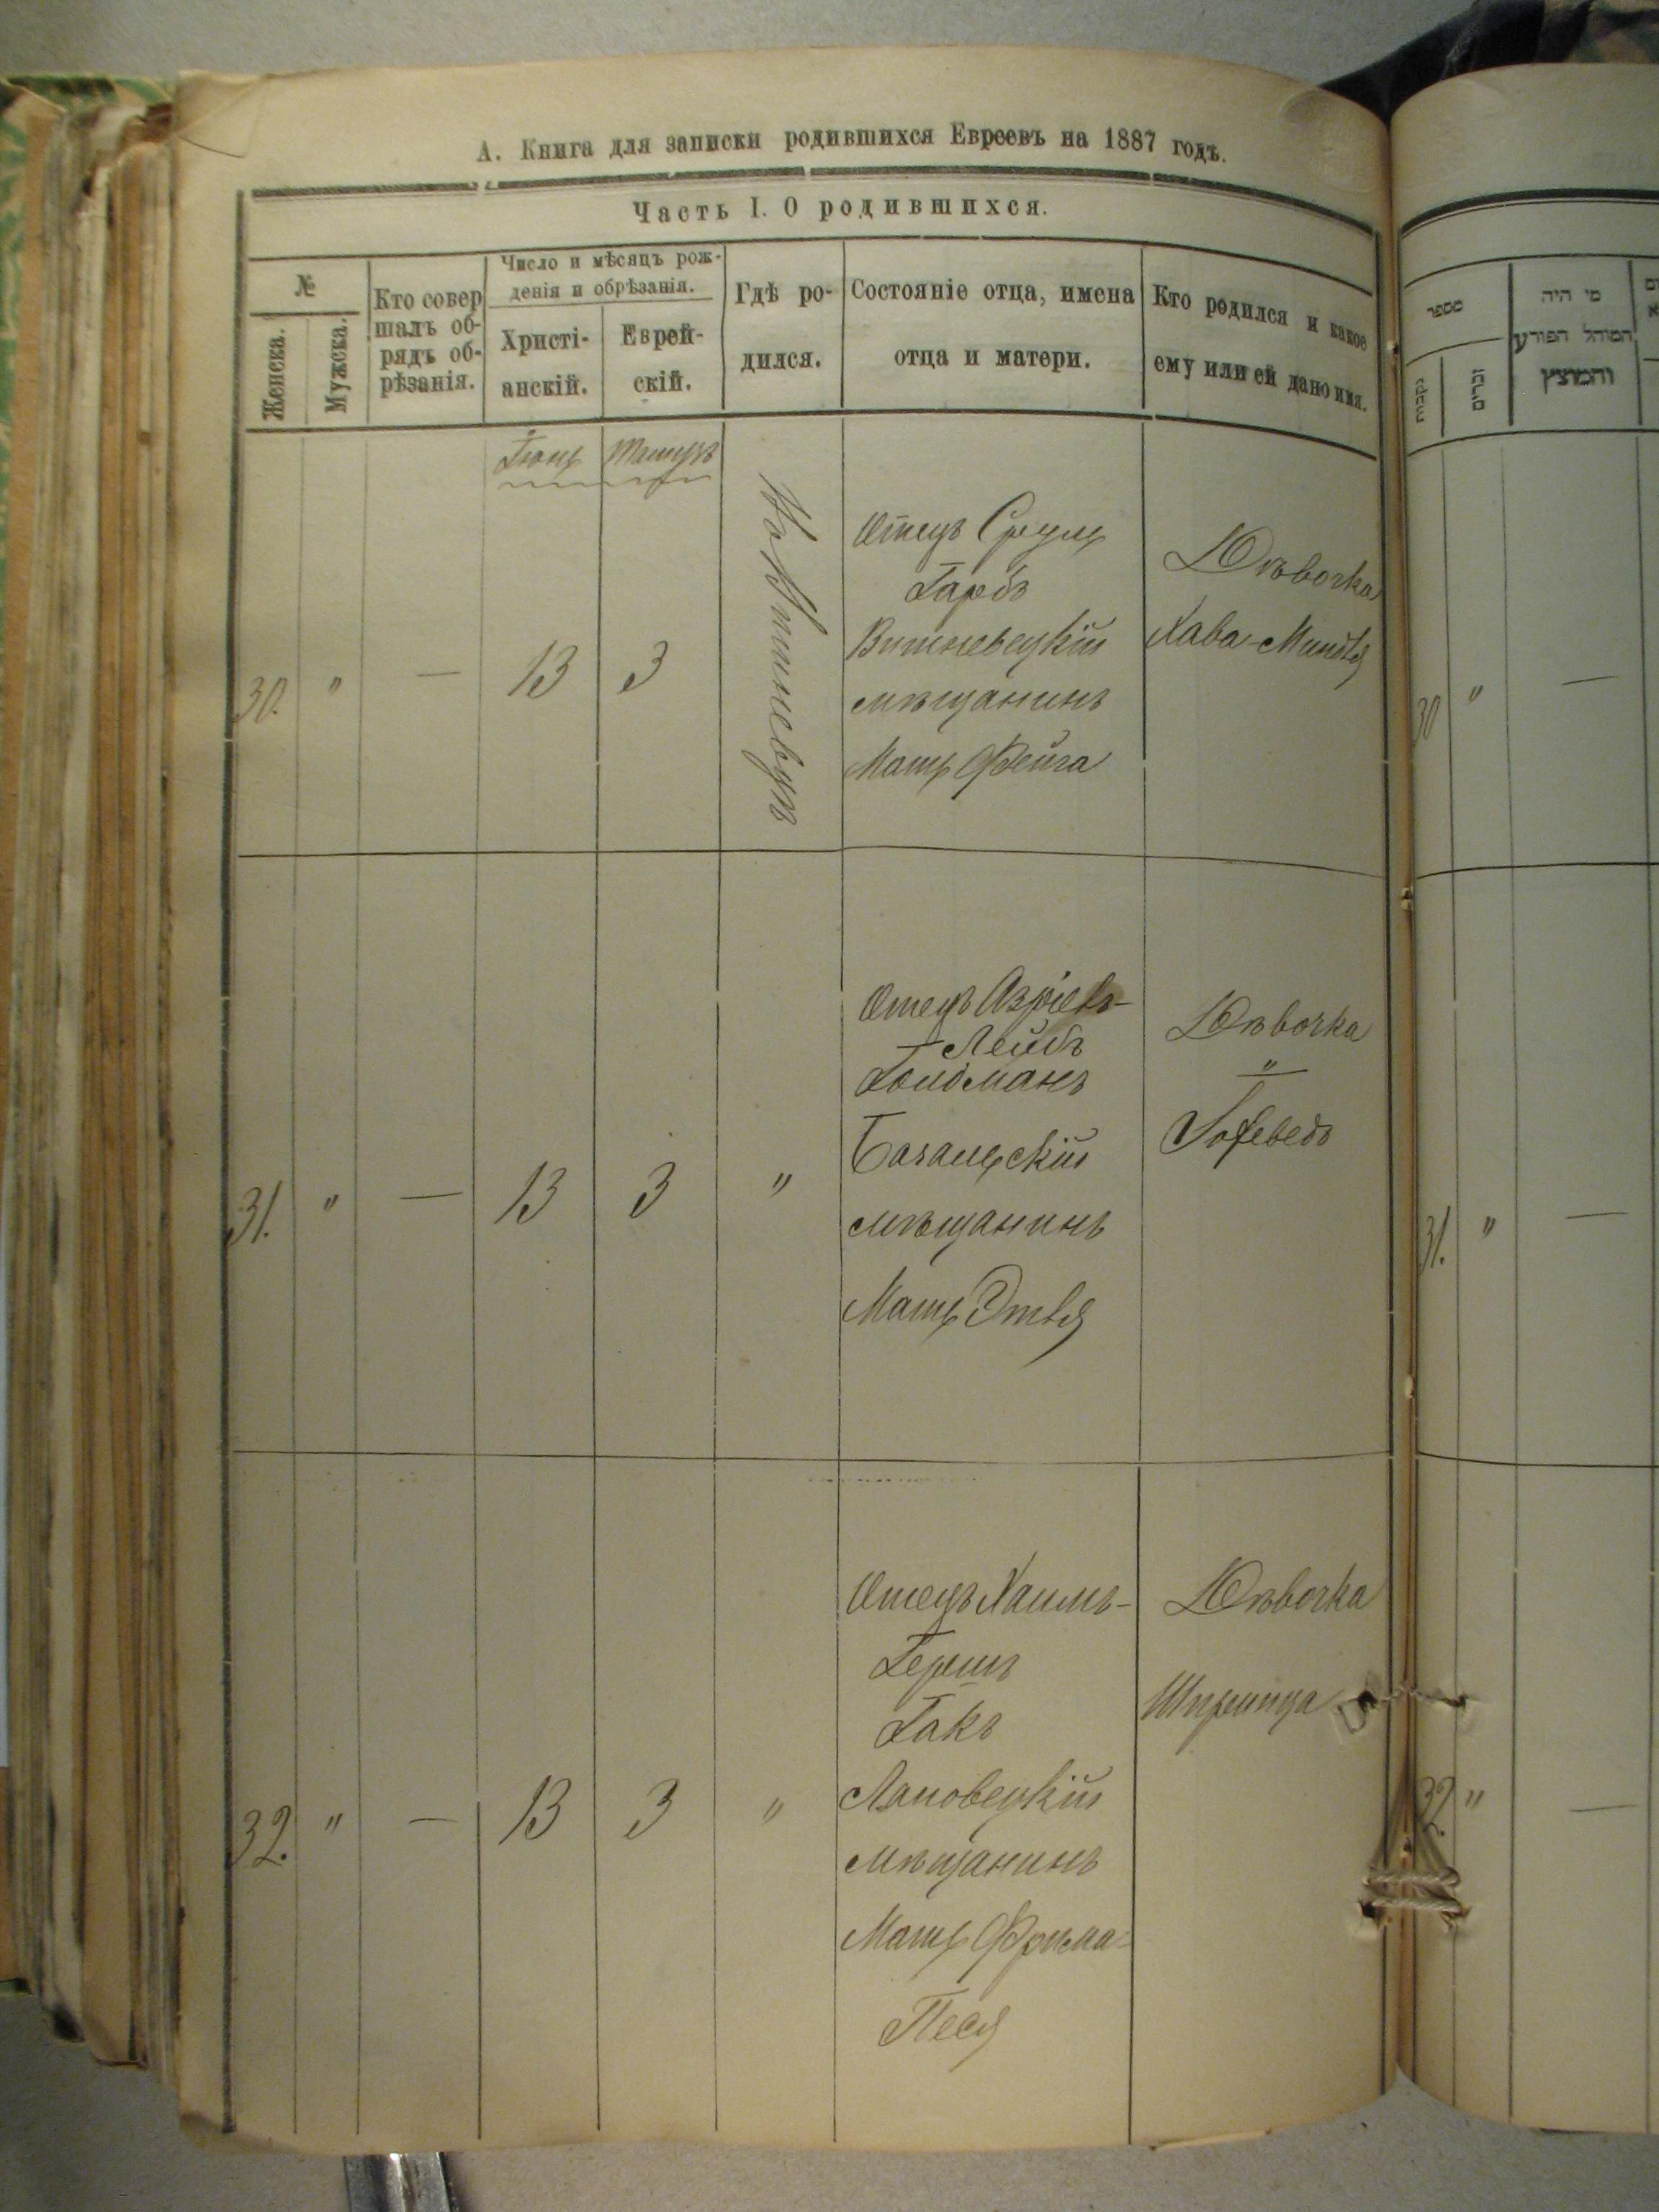 А. Книга для записки родившихся Евреевъ на 1887 годъ.
Часть I. О родившихся.
№
Женска.
Мужска.
Кто совер
шалъ об-
рядъ об-
рѣзанія.
Число и мѣсяцъ рож-
денія и обрѣзанія.
Христі-
анскій.
Еврей-
скій.
Гдѣ ро-
дился.
Состояніе отца, имена
отца и матери.
Кто родился и какое
ему или ей дано имя.
30. " — 13 3
Отецъ Сруль
Гарбъ
Вишневецкій
мѣщанинъ
Мать Фейга
Дѣвочка
Хава-Миндля
31. " — 13 3 "
Отецъ Азріель-
Лейбъ
Гольдманъ
мѣщанинъ
Мать Этля
Дѣвочка
"
32. " — 13 3 "
Отецъ Хаимъ-
Гершъ
Гакъ
Лановецкій
мѣщанинъ
Мать Фрима-
Песя
Дѣвочка
Шпринца
מספר
נקבות
זכרים
מי היה
המוהל הפורע
והמוצץ
30 " —
31. " —
32. " —